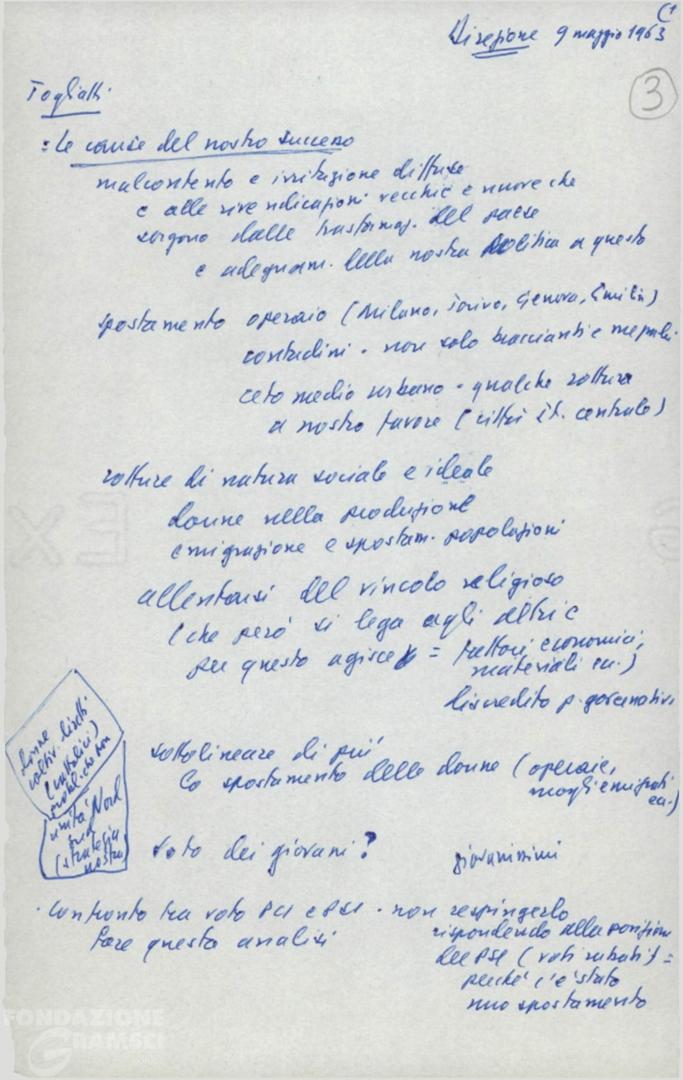 Direzione 9 maggio 1963
3
Togliatti
: le cause del nostro successo
malcontento e irritazione diffuse
e alle rivendicazioni vecchie e nuove che
sorgono dalle trasformaz. del paese
e adeguam. della nostra politica a questo
spostamento operaio (Milano, Torino, Genova, Emilia)
contadini - non solo braccianti e
ceto medio urbano - qualche rottura
a nostro favore (città it. centrale)
rotture di natura sociale e ideale
donne nella produzione
emigrazione e spostam. popolazioni
allentarsi del vincolo religioso
(che però si lega agli altri e
per questo agisce = fattori economici,
materiali ecc.)
discredito p. governativi
sottolineare di più
lo spostamento delle donne (operaie,
mogli emigrati
ecc.)
donne
coltiv. diretti
(cattolici)
unità Nord
sud
(strategia
nostra)
voto dei giovani?
giovanissimi
- confronto tra voto PCI e PSI - non respingerlo
rispondendo alla posizione
fare questa analisi
del PSI (voti rubati) =
perché c'è stato
uno spostamento
FONDAZIONE
GRAMSCI